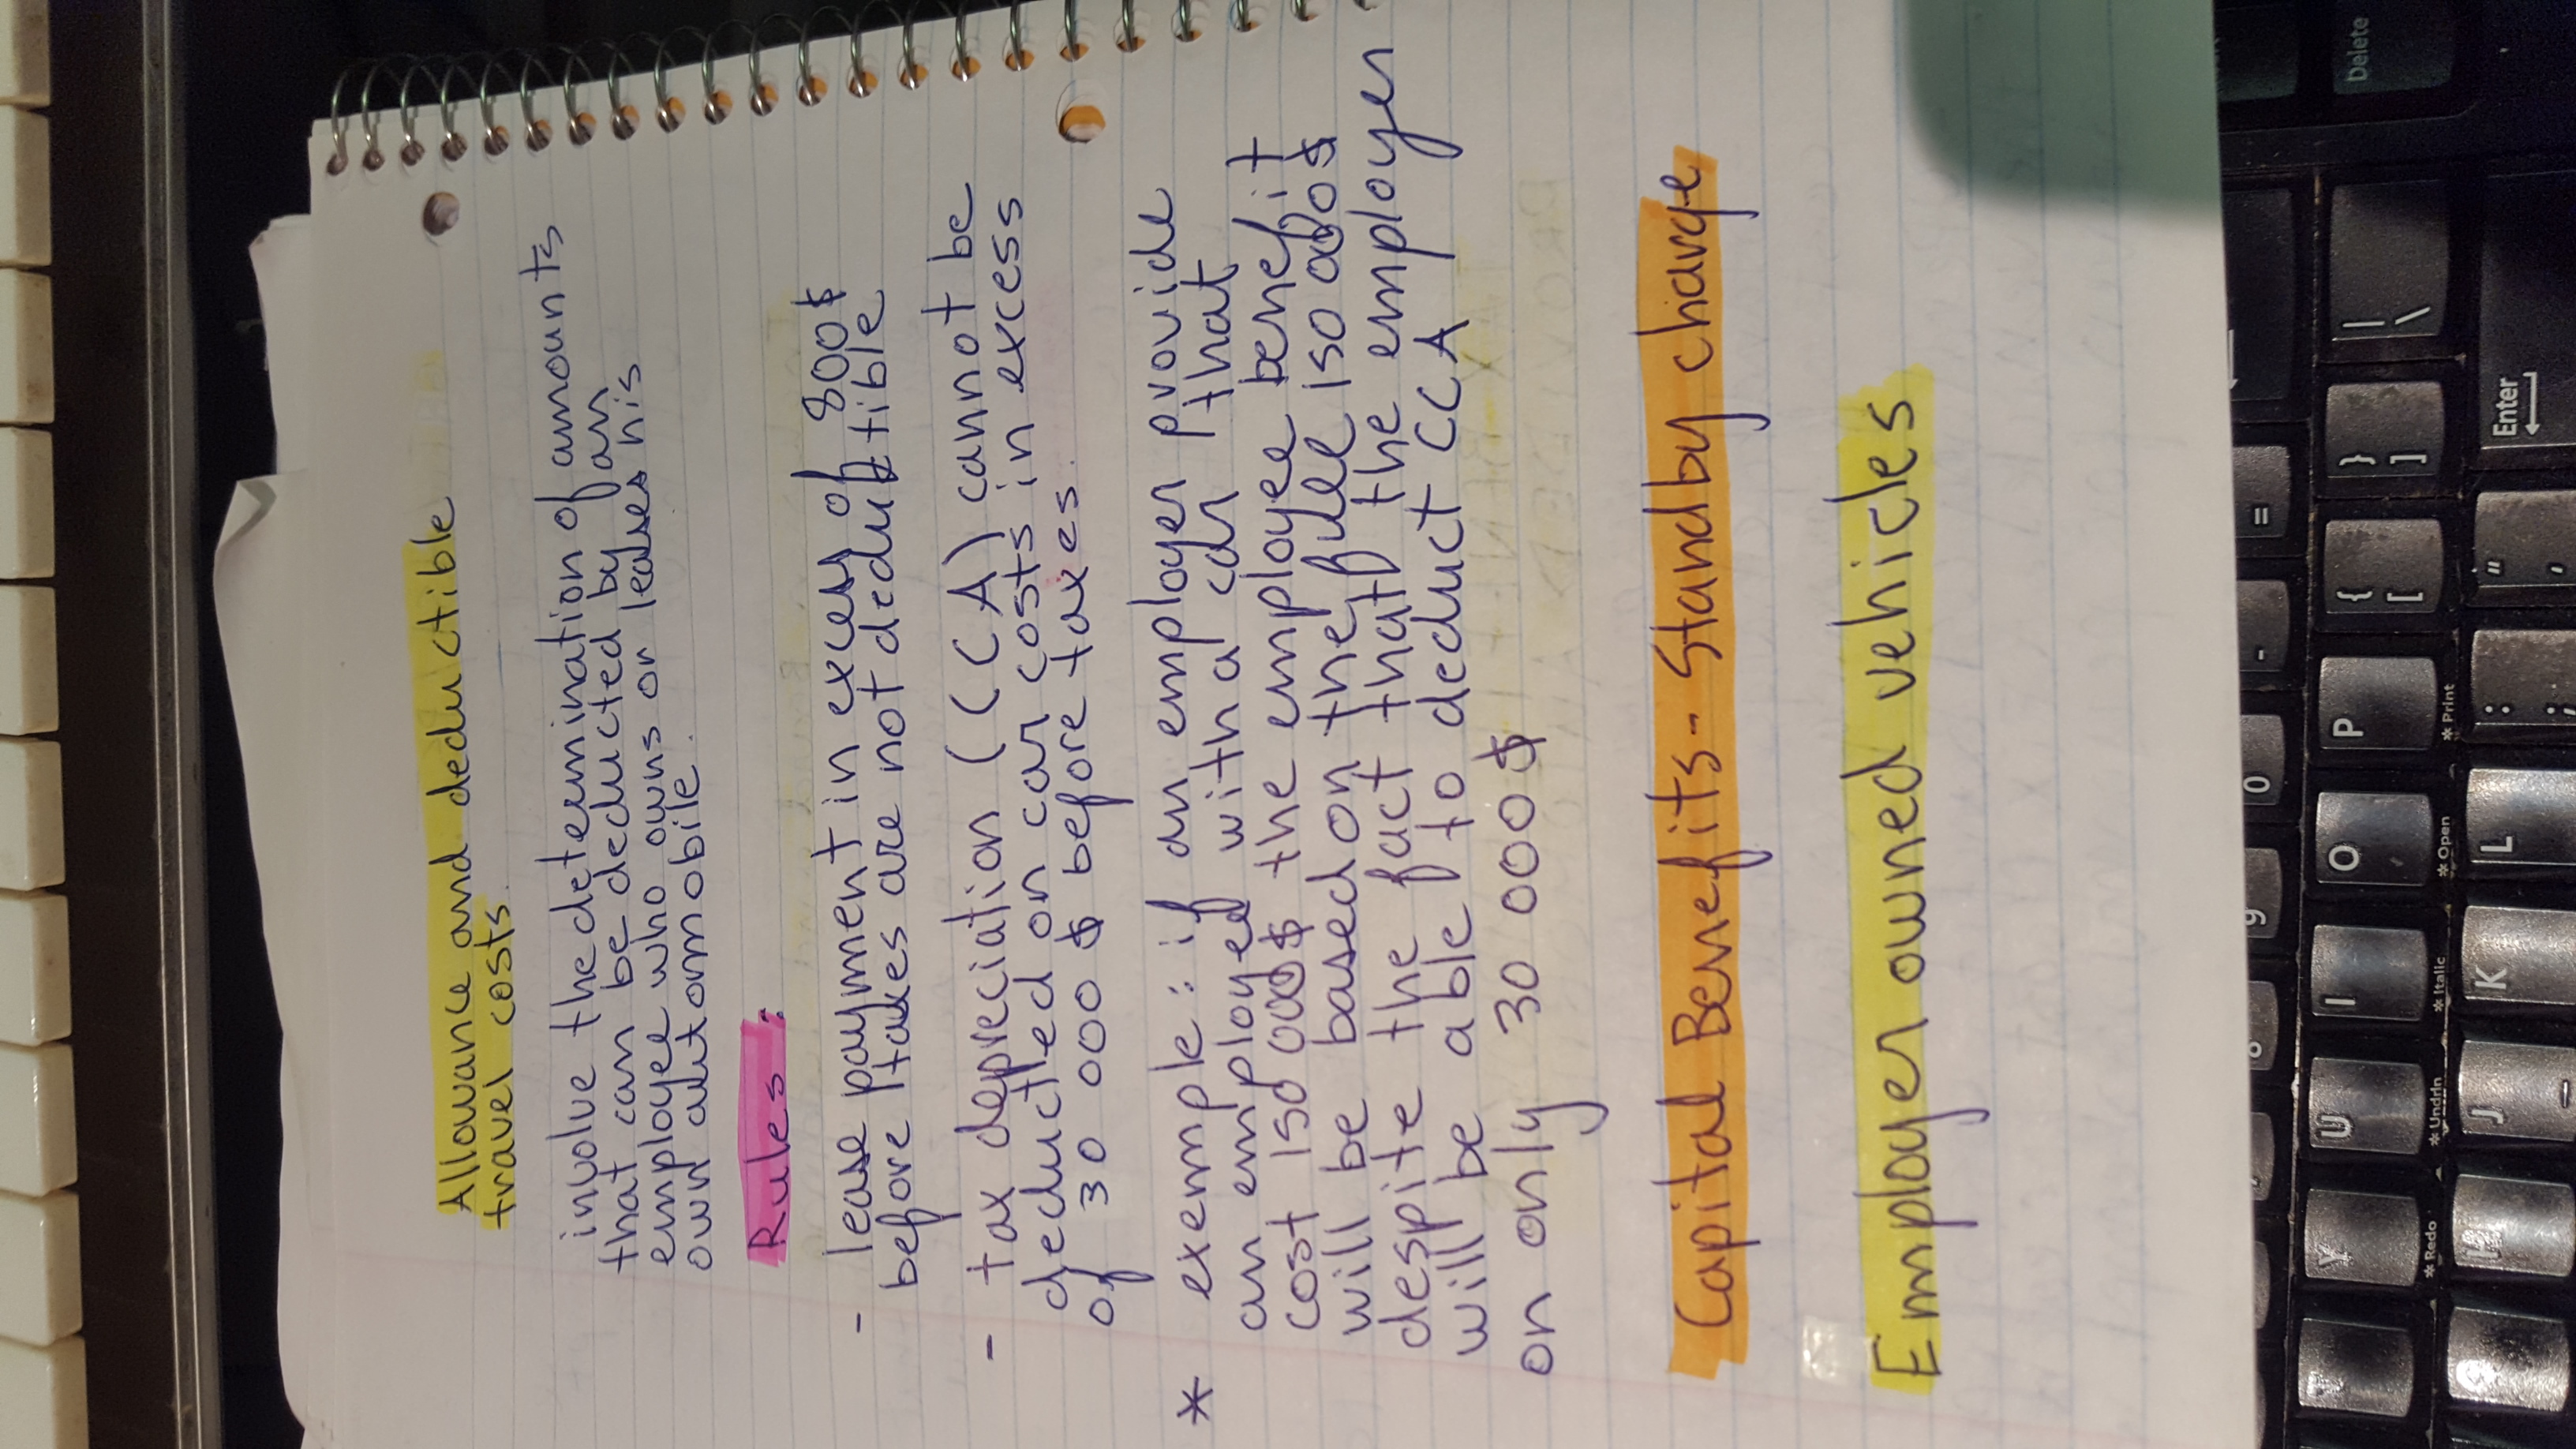 Allowance and deductible
travel costs.
involve the detemination of amounts
that can be deducted by an
employee who owns or leases his
own automobile.
Rules:
- lease payment in exces of 800$
before taxes are not deductible
- tax depreciation (CCA) cannot be
deducted on car costs in excess
of 30 000 $ before taxes.
* exemple: if an employer provide
an employee with a car that
cost 150 000$ the employee benefit
will be based on the full 150 000$
despite the fact that the employer
will be able to deduct CCA
on only 30 000$
Capital Benefits - Standby charge
Employer owned vehicles
Delete
Enter
| \
} ]
{ [
=
-
0
9
8
P
O
I
U
Y
T
* Print
* Open
* Italic
* Undrln
* Redo
" '
: ;
L
K
J
H
G